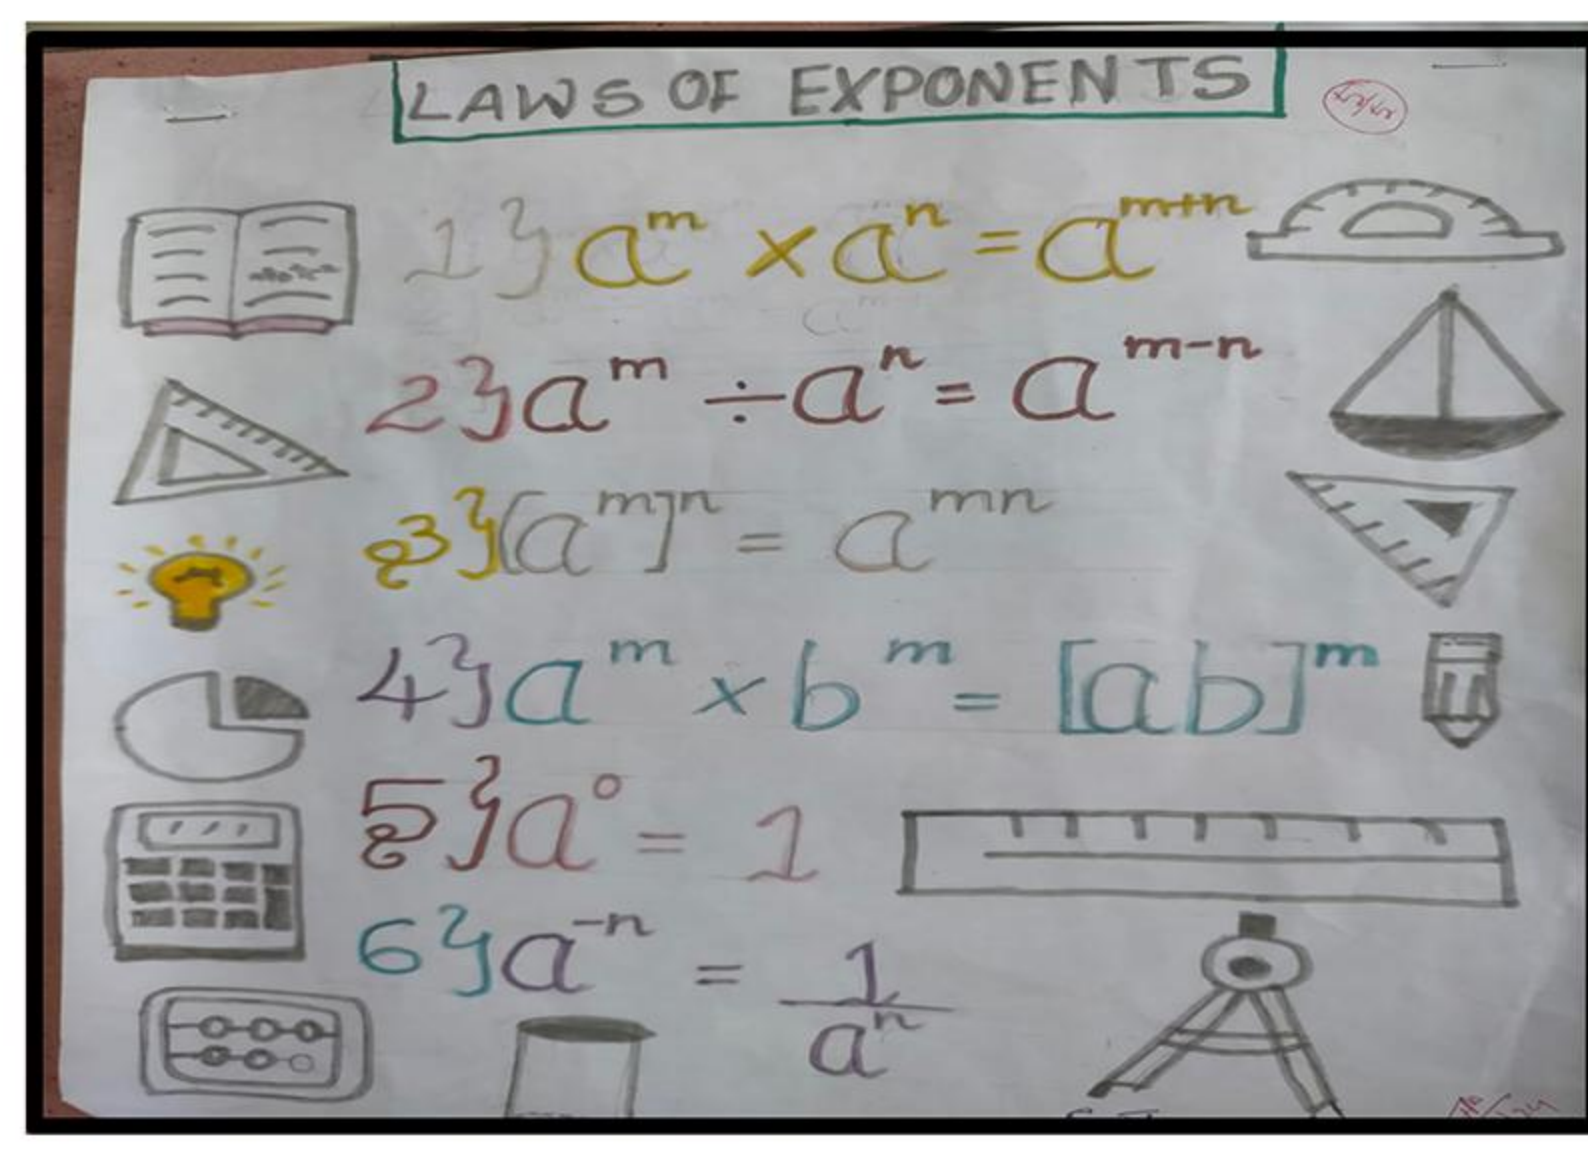 LAWS OF EXPONENTS
1} aᵐ × aⁿ = aᵐ⁺ⁿ
2} aᵐ ÷ aⁿ = aᵐ⁻ⁿ
3} [aᵐ]ⁿ = aᵐⁿ
4} aᵐ × bᵐ = [ab]ᵐ
5} a⁰ = 1
6} a⁻ⁿ = 1/aⁿ